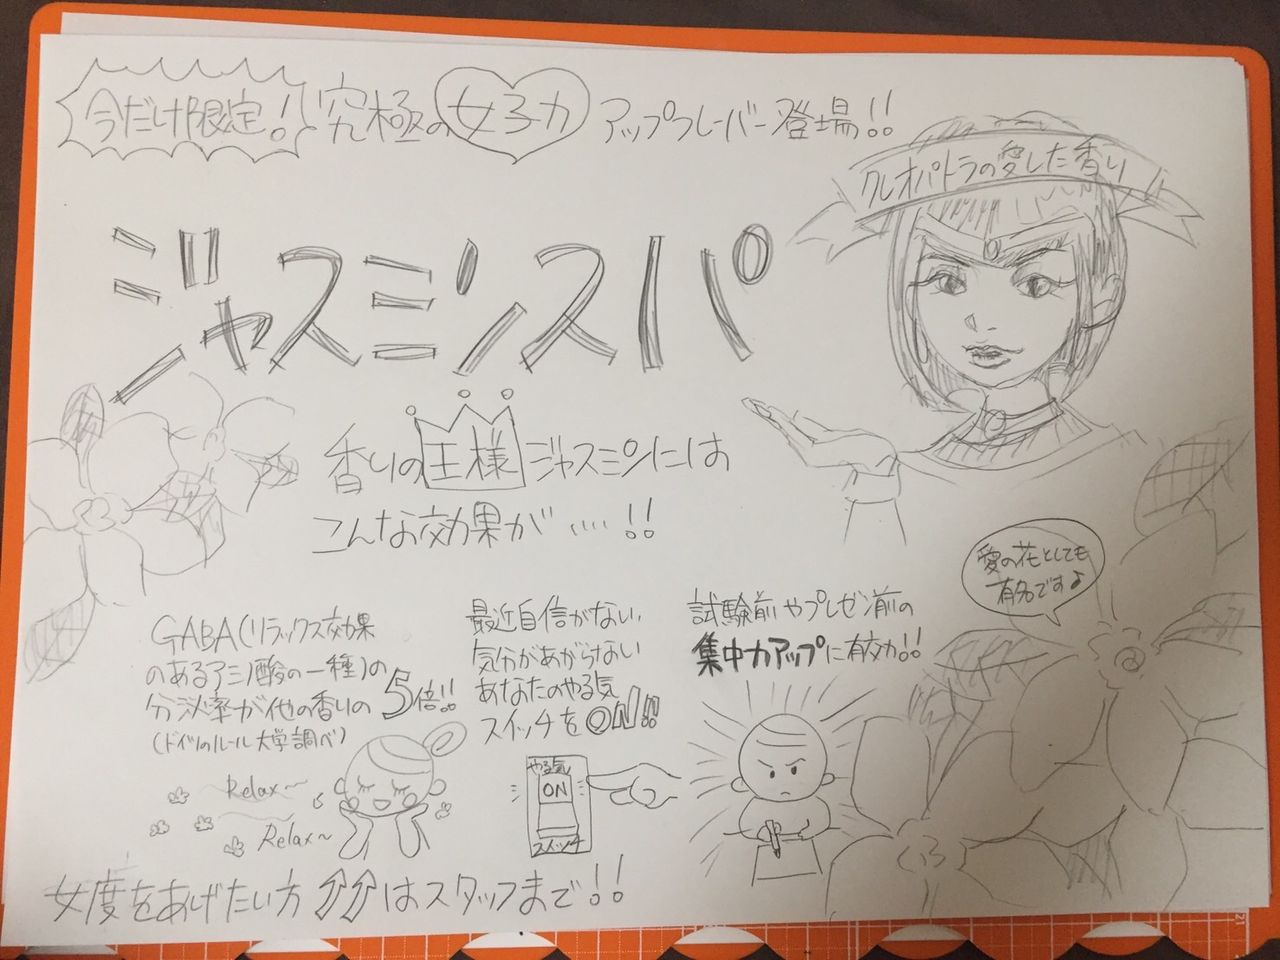 今だけ限定! 究極の女子力アップフレーバー登場!!
クレオパトラの愛した香り
ジャスミンスパ
香りの王様ジャスミンには
こんな効果が....!!
愛の花としても
有名です♪
GABA(リラックス効果
のあるアミノ酸の一種)の
分泌率が他の香りの5倍!!
(ドイツのルール大学調べ)
Relax〜
Relax〜
最近自信がない、
気分があがらない
あなたのやる気
スイッチをON!!
やる気
ON
スイッチ
試験前やプレゼン前の
集中力アップに有効!!
女度をあげたい方⇧⇧はスタッフまで!!
21